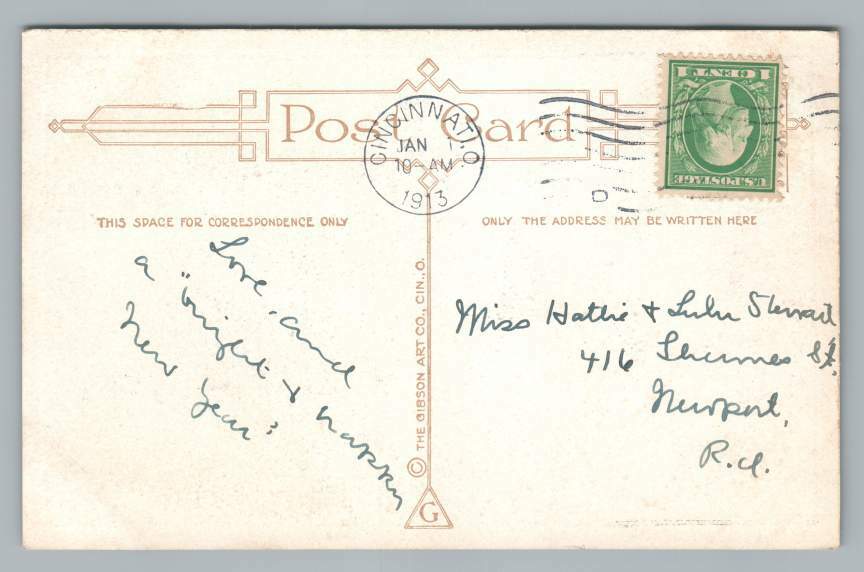 Post Card
CINCINNATI, O.
JAN 1
10-AM
1913
1 CENT 1
U.S. POSTAGE
THIS SPACE FOR CORRESPONDENCE ONLY
ONLY THE ADDRESS MAY BE WRITTEN HERE
Love, and
a "bright & happy
New Year"
© THE GIBSON ART CO., CIN., O.
G
Miss Hattie & Lulu Stewart
416 St.
Newport,